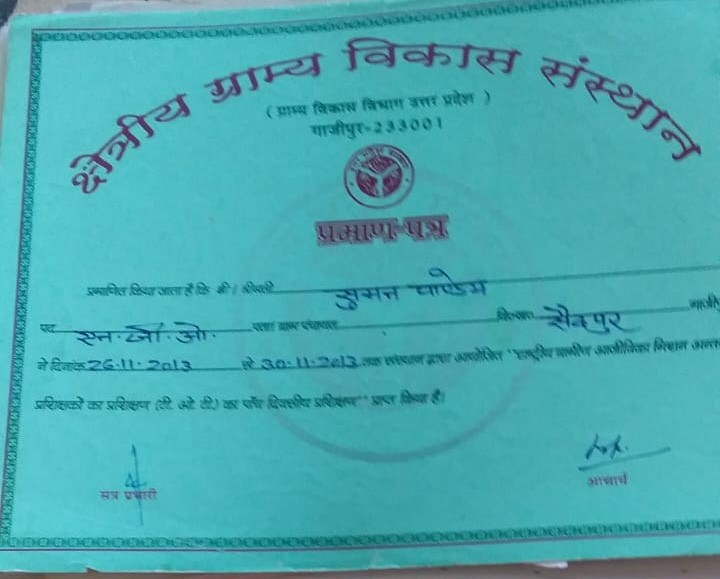 क्षेत्रीय ग्राम्य विकास संस्थान
( ग्राम्य विकास विभाग उत्तर प्रदेश )
गाजीपुर-233001
प्रमाण-पत्र
प्रमाणित किया जाता है कि श्री / श्रीमती सुमन पाण्डेय
पद एन.जी.ओ. पता ग्राम पंचायत विकास सैदपुर गाजी
ने दिनांक 26.11.2013 से 30.11.2013 तक संस्थान द्वारा आयोजित "राष्ट्रीय ग्रामीण आजीविका मिशन अन्त
प्रशिक्षकों का प्रशिक्षण (टी. ओ. टी.) का पाँच दिवसीय प्रशिक्षण" प्राप्त किया है।
सत्र प्रभारी
आचार्य